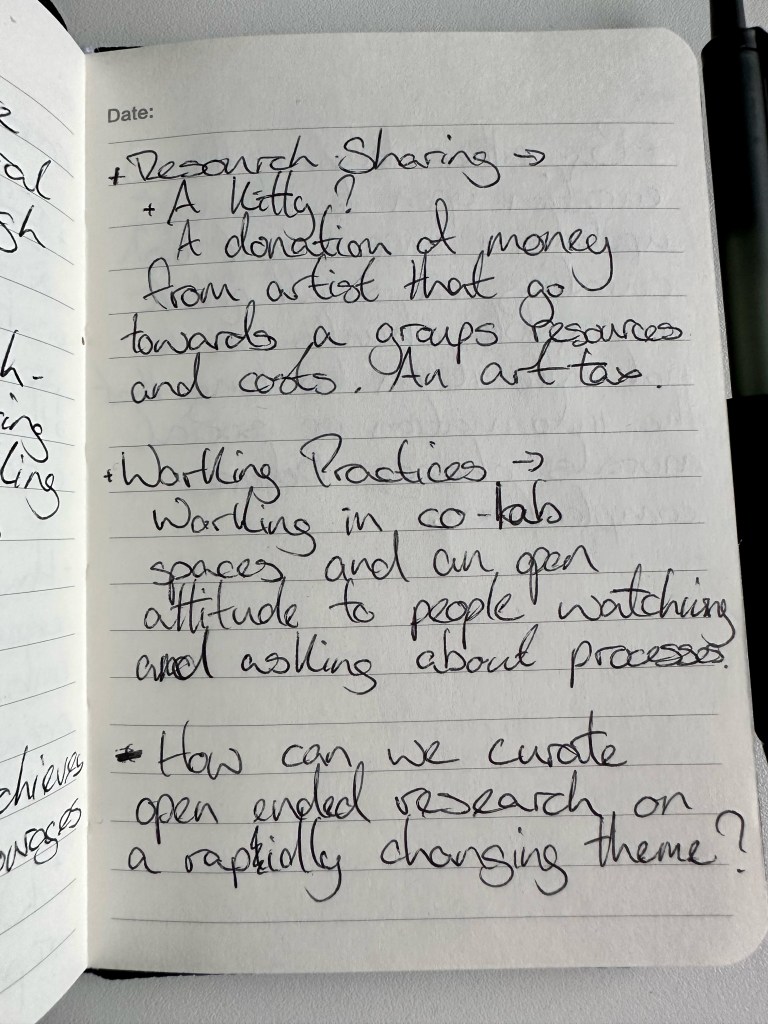 Date:
+ Research Sharing →
+ A Kitty?
A donation of money
from artist that go
towards a groups resources
and costs. An art tax.
+ Working Practices →
Working in co-lab
spaces and an open
attitude to people watching
and asking about processes.
- How can we curate
open ended research on
a rapidly changing theme?
al
gh
h-
ing
ling
chieves